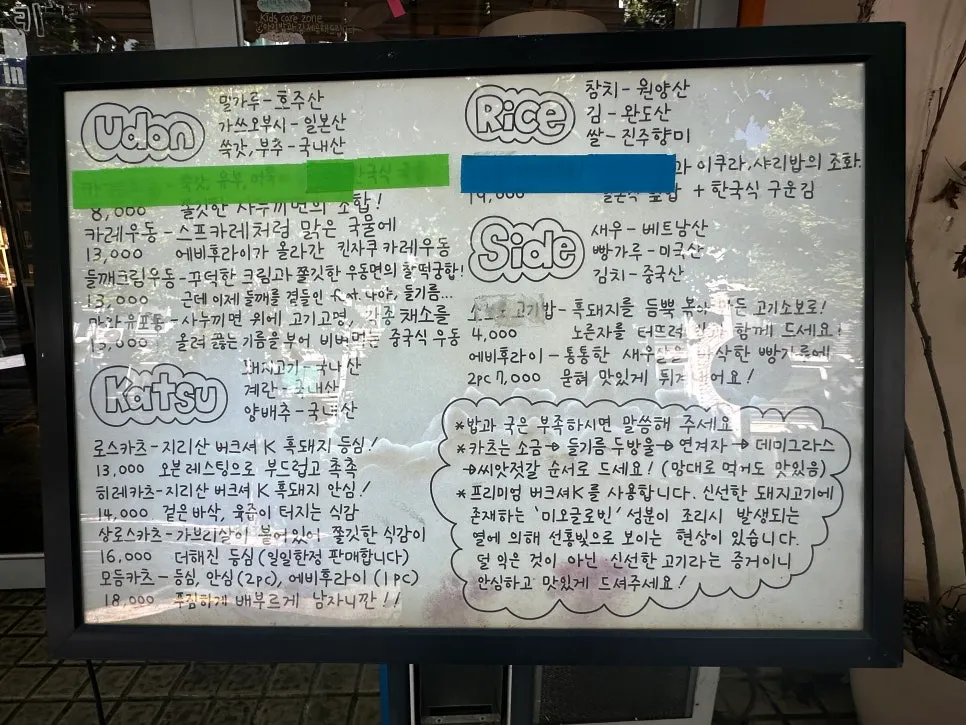 Kids care zone
Udon
밀가루-호주산
가쓰오부시-일본산
쑥갓,부추-국내산
쑥갓, 유부,
8,000 쫄깃한 사누끼면의 조합!
카레우동-스프카레처럼 맑은 국물에
13,000 에비후라이가 올라간 킨자쿠 카레우동
들깨크림우동-꾸덕한 크림과 쫄깃한 우동면의 찰떡궁합!
13,000 근데 이제 들깨를 곁들인 들기름...
마라유포동-사누끼면 위에 고기고명, 각종 채소를
13,000 올려 끓는 기름을 부어 비벼먹는 중국식 우동
Katsu
돼지고기-국내산
계란-국내산
양배추-국내산
로스카츠-지리산 버크셔 K 흑돼지 등심!
13,000 오븐레스팅으로 부드럽고 촉촉
히레카츠-지리산 버크셔 K 흑돼지 안심!
14,000 겉은 바삭, 육즙이 터지는 식감
상로스카츠-가브리살이 붙어있어 쫄깃한 식감이
16,000 더해진 등심(일일한정 판매합니다)
모듬카츠-등심, 안심(2pc), 에비후라이(1pc)
18,000 푸짐하게 배부르게 남자니깐!!
Rice
참치-원양산
김-완도산
쌀-진주향미
과 이쿠라,샤리밥의 조화.
+ 한국식 구운김
Side
새우-베트남산
빵가루-미국산
김치-중국산
고기밥-흑돼지를 듬뿍 볶아 만든 고기소보로!
4,000 노른자를 터뜨려 함께 드세요!
에비후라이-통통한 새우살을 바삭한 빵가루에
2pc 7,000 묻혀 맛있게 튀겨내어요!
*밥과 국은 부족하시면 말씀해 주세요
*카츠는 소금→들기름 두방울→연겨자→데미그라스
→씨앗젓갈 순서로 드세요! (맘대로 먹어도 맛있음)
*프리미엄 버크셔K를 사용합니다. 신선한 돼지고기에
존재하는 '미오글로빈' 성분이 조리시 발생되는
열에 의해 선홍빛으로 보이는 현상이 있습니다.
덜 익은 것이 아닌 신선한 고기라는 증거이니
안심하고 맛있게 드셔주세요!